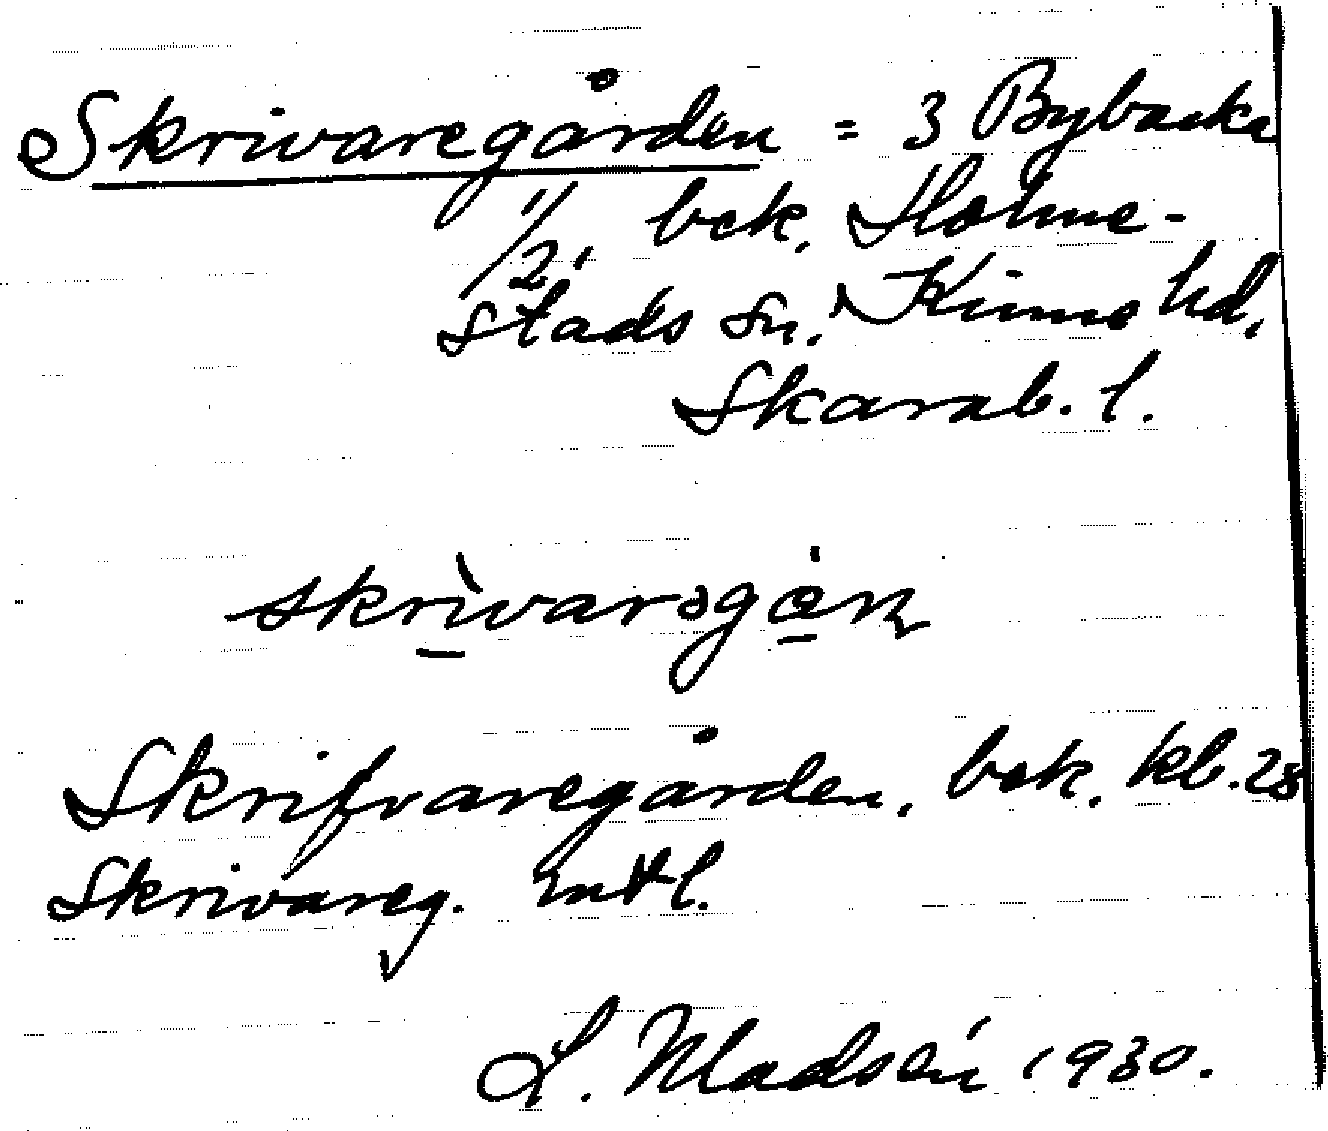 Skrivaregården = 3 Bybacka
1/2, bek. Holme-
stads sn. Kinne hd,
Skarab. l.
skrìvarəgạ̊ɳ
Skrifvaregården, bek. kb. 28
Skrivareg. mtl.
L. Madsén 1930.